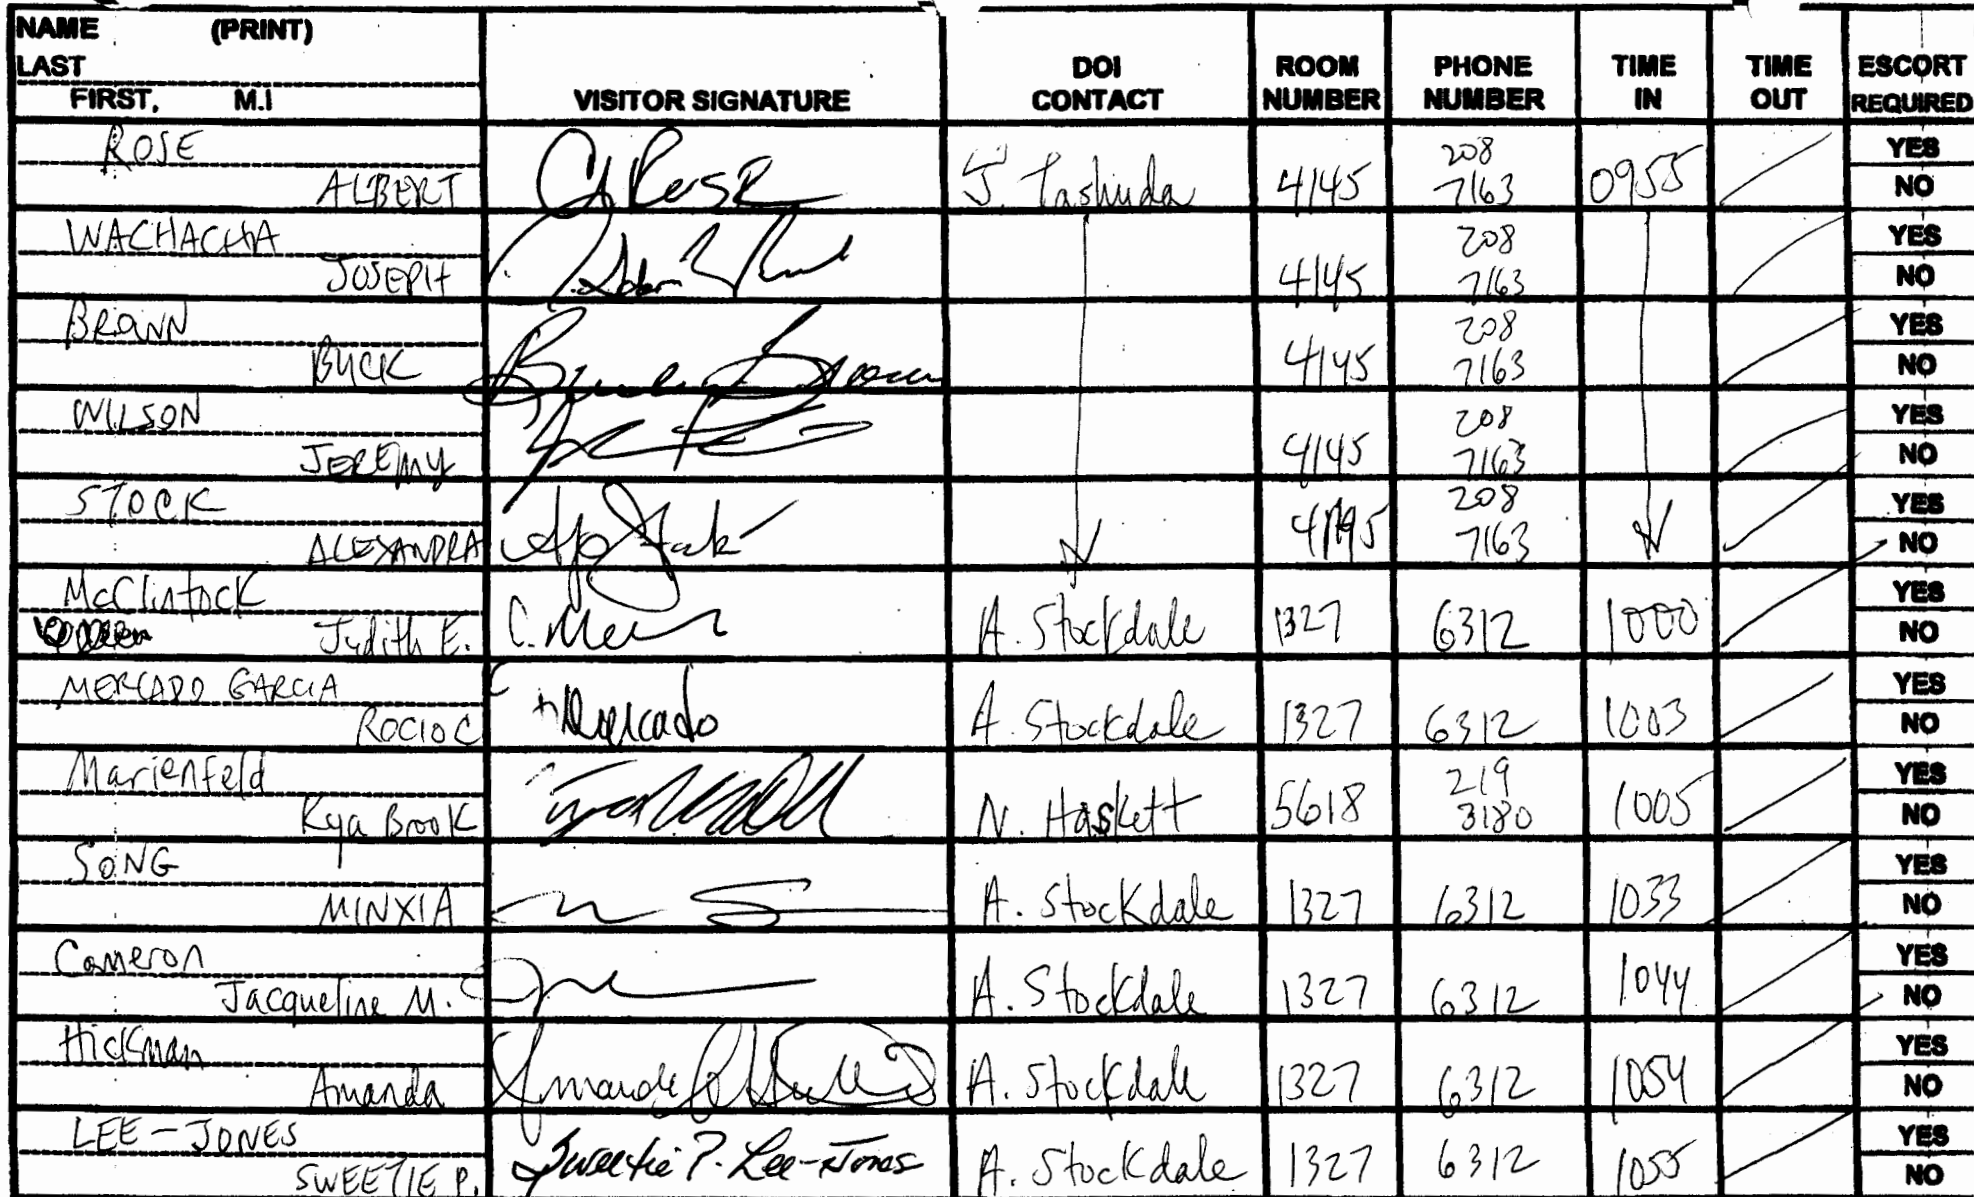 NAME (PRINT)
LAST
FIRST, M.I
VISITOR SIGNATURE
DOI CONTACT
ROOM NUMBER
PHONE NUMBER
TIME IN
TIME OUT
ESCORT REQUIRED
ROSE
ALBERT
J. Tashuda 4145 208 7163 0955 YES NO
WACHACHA
JOSEPH
4145 208 7163 YES NO
BROWN
BUCK
4145 208 7163 YES NO
WILSON
JEREMY
4145 208 7163 YES NO
STOCK
ALEXANDRA
208 7163 YES NO
McClintock
Judith E.
A. Stockdale 1327 6312 1000 YES NO
MERCADO GARCIA
ROCIO C
Mercado A. Stockdale 1327 6312 1003 YES NO
Marienfeld
Kya Brook
N. Haskett 5618 219 3180 1005 YES NO
SONG
MINXIA
A. Stockdale 1327 6312 1033 YES NO
Cameron
Jacqueline M.
A. Stockdale 1327 6312 1044 YES NO
Hickman
Amanda
Amanda A. Stockdale 1327 6312 1054 YES NO
LEE-JONES
SWEETIE P.
Sweetie P. Lee-Jones A. Stockdale 1327 6312 1055 YES NO